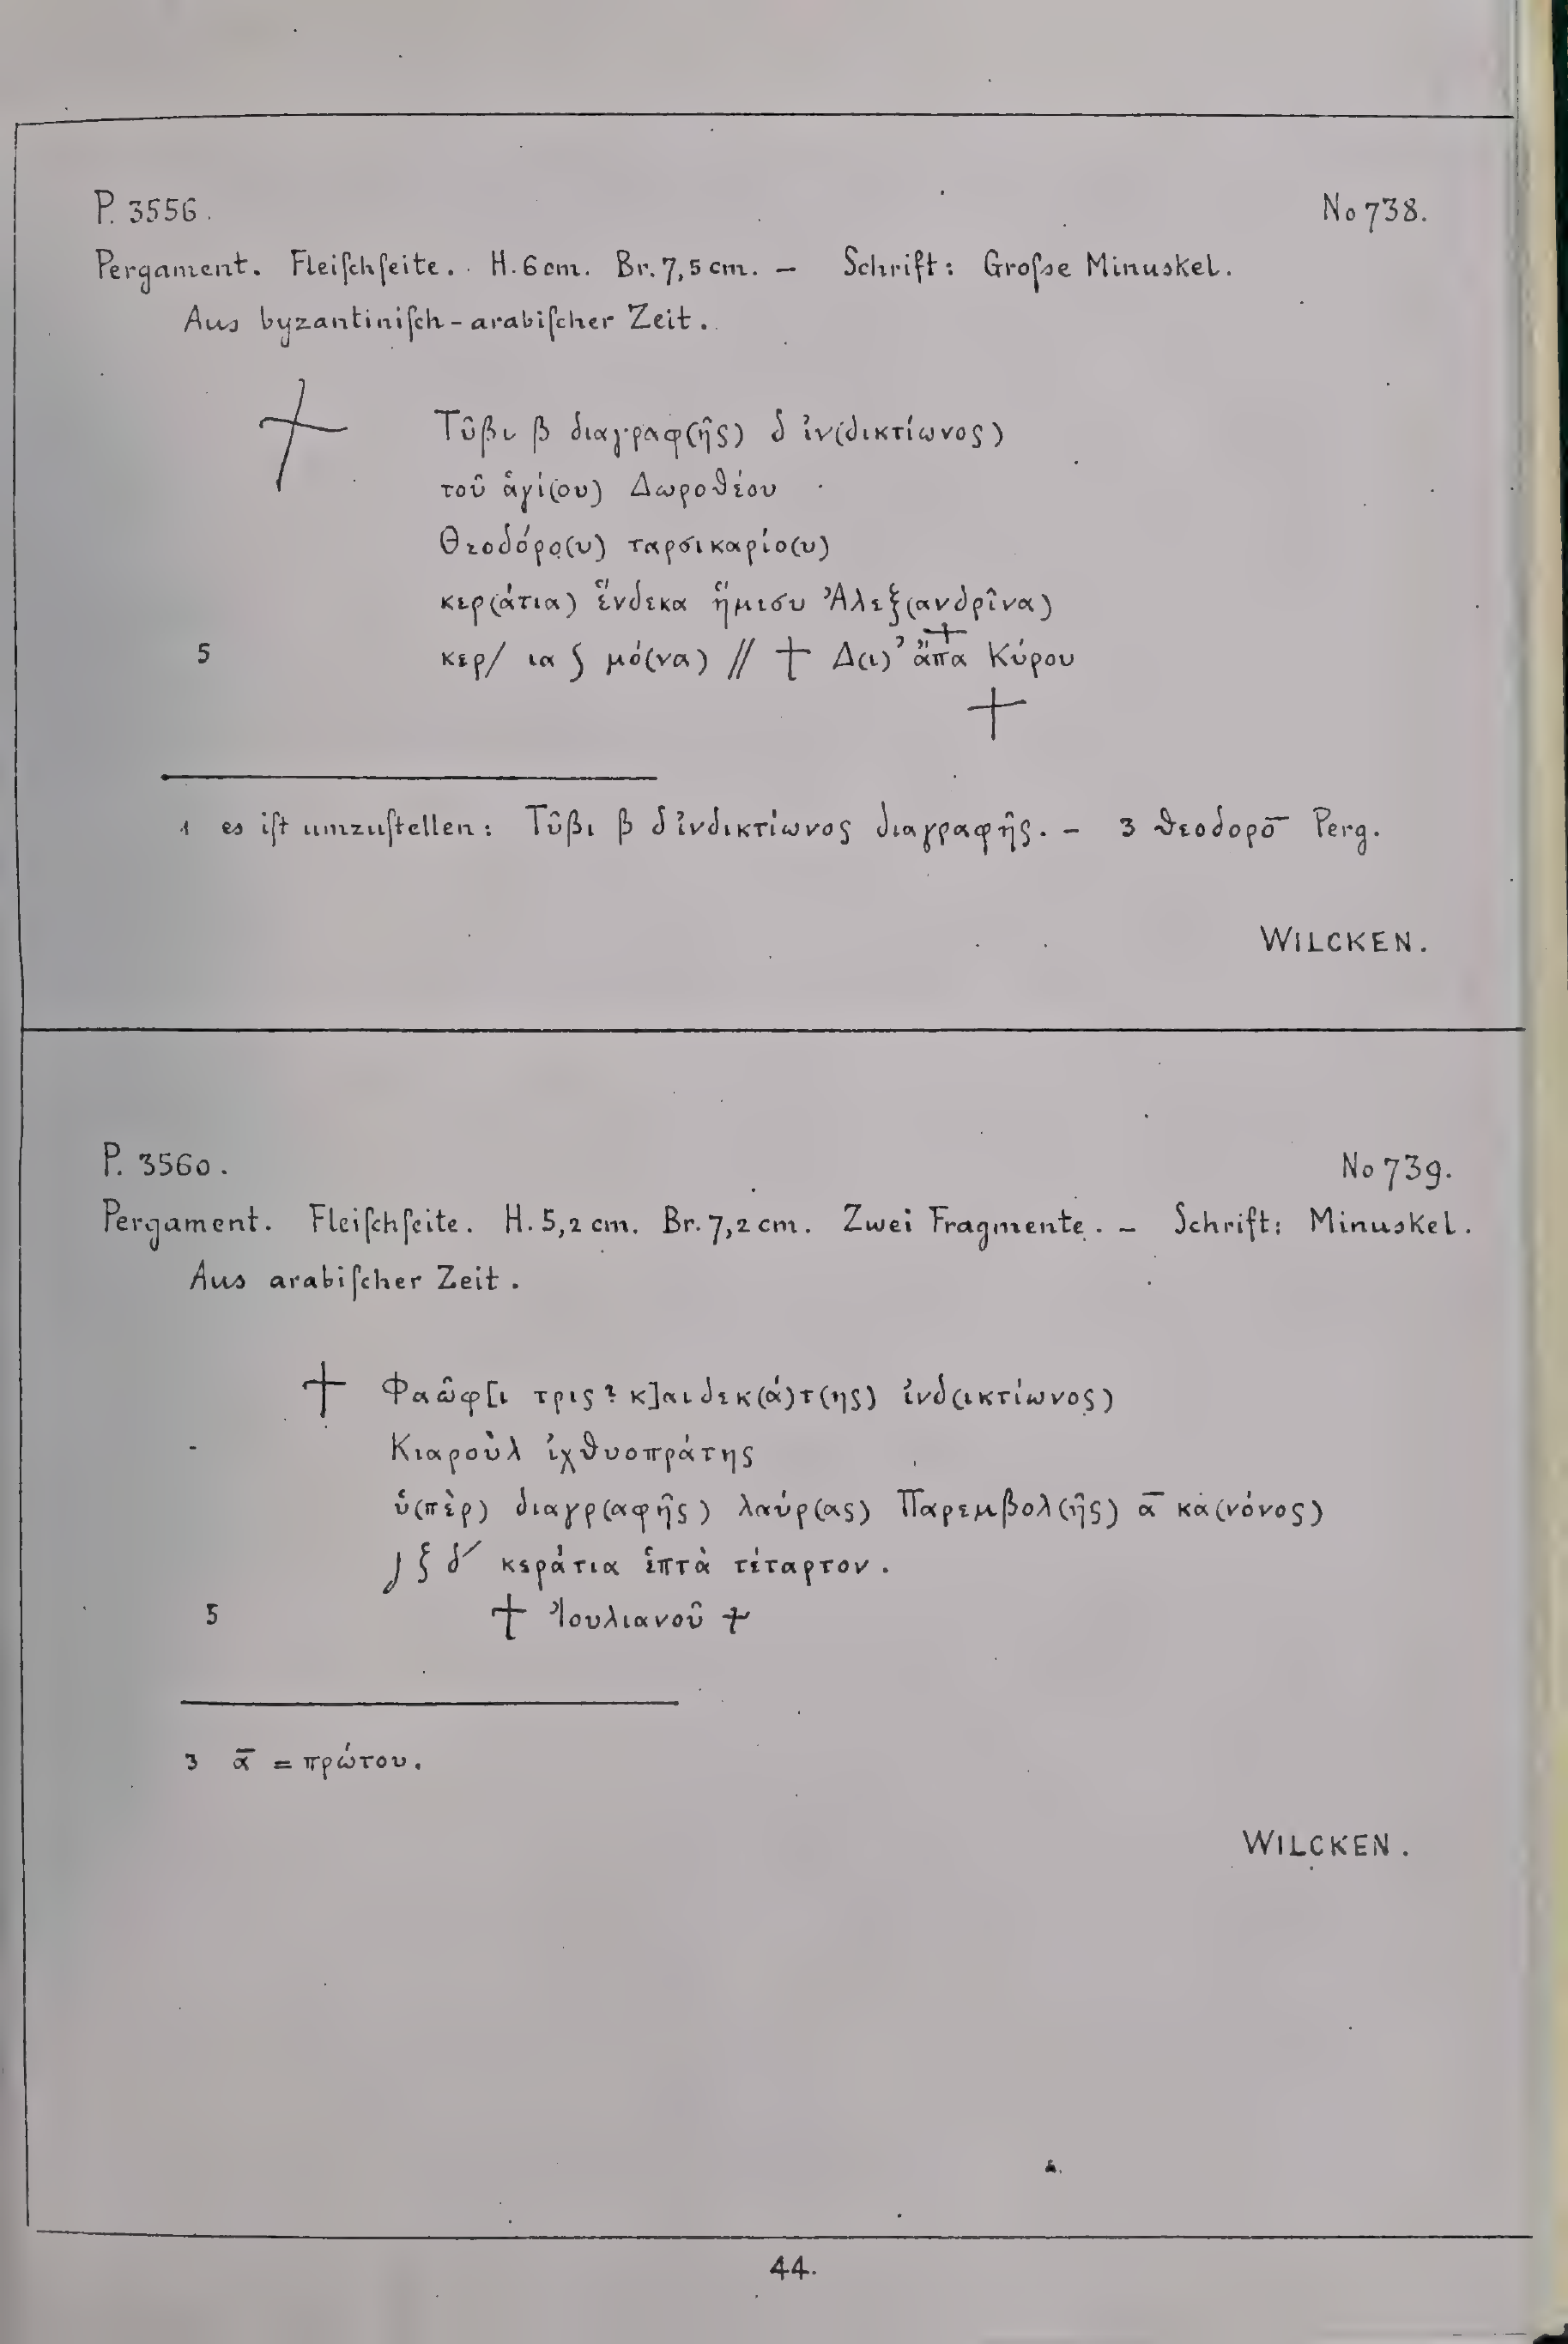 P. 3556. No 738.
Pergament. Fleiſchſeite. H. 6 cm. Br. 7,5 cm. – Schrift: Groſse Minuskel.
Aus byzantiniſch-arabiſcher Zeit.
Τῦβι β διαγραφ(ῆς) δ ἰν(δικτίωνος)
τοῦ ἁγί(ου) Δωροθέου
Θεοδόρο(υ) ταρσικαρίο(υ)
κερ(άτια) ἕνδεκα ἥμισυ Ἀλεξ(ανδρῖνα)
5 κερ/ ια ʃ μό(να) // † Δ(ι)’ ἄπα Κύρου
†
1 es iſt umzuſtellen: Τῦβι β δ ἰνδικτίωνος διαγραφῆς. – 3 θεοδορο̄ Perg.
WILCKEN.
P. 3560. No 739.
Pergament. Fleiſchſeite. H. 5,2 cm. Br. 7,2 cm. Zwei Fragmente. – Schrift: Minuskel.
Aus arabiſcher Zeit.
† Φαῶφ[ι τρις? κ]αιδεκ(ά)τ(ης) ἰνδ(ικτίωνος)
Κιαροὺλ ἰχθυοπράτης
ὑ(πὲρ) διαγρ(αφῆς) λαύρ(ας) Παρεμβολ(ῆς) ᾱ κα(νόνος)
ξ δ´ κεράτια ἑπτὰ τέταρτον.
5 † Ἰουλιανοῦ †
3 ᾱ = πρώτου.
WILCKEN.
44.